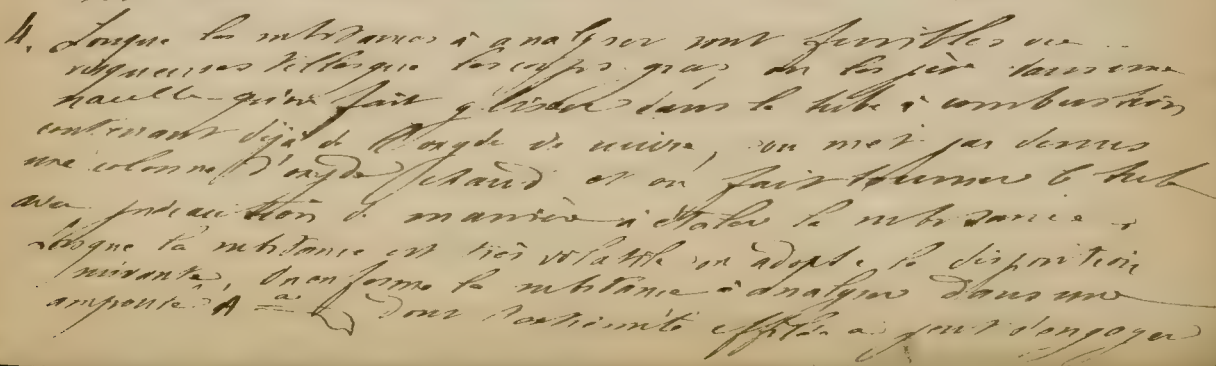 4. Lorsque les substances à analyser sont fusibles ou
visqueuses telles que les corps gras, on les pèse dans une
nacelle qu'on fait glisser dans le tube à combustion
contenant déjà de l'oxyde de cuivre, on met par dessus
une colonne d'oxyde chaud et on fait tourner le tube
avec précaution de manière à étaler la substance.
Lorsque la substance est très volatile on adopte la disposition
suivante, On enferme la substance à analyser dans une
ampoule A a dont l'extrémité effilée a peut s'engager